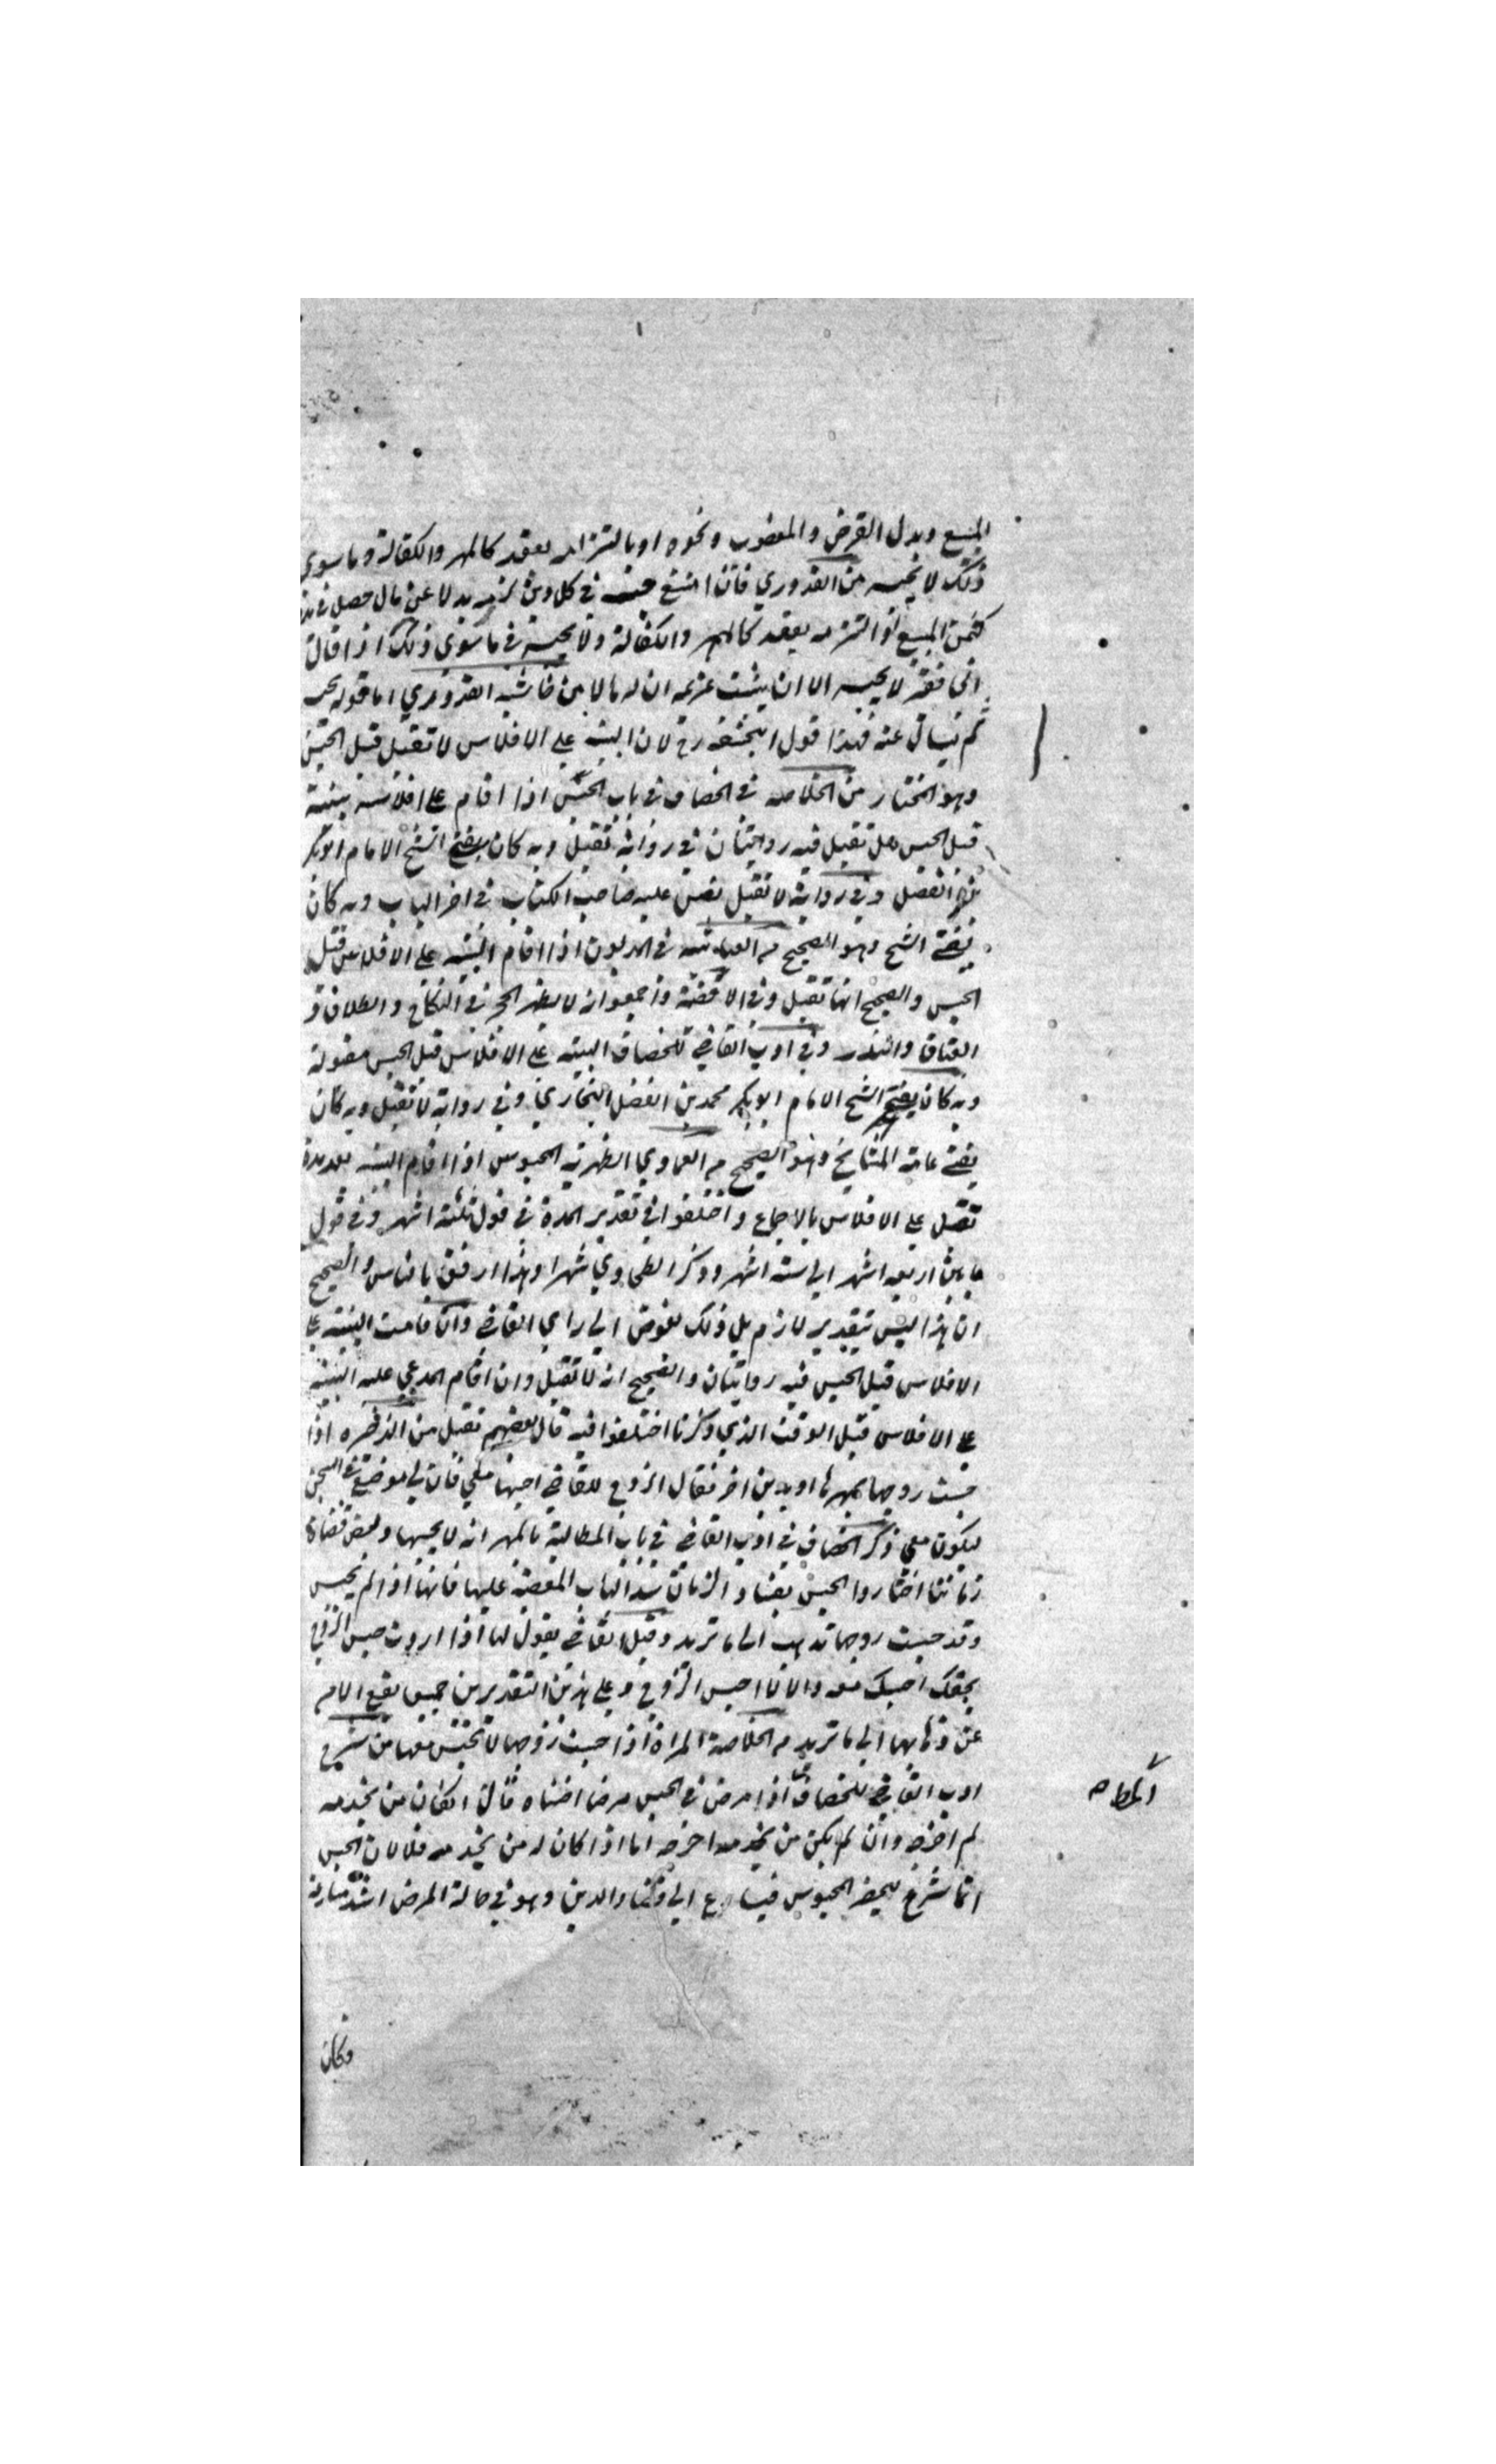 المبيع وبدل القرض والمغصوب ونحوه او بالتزامه بعقد كالمهر والكفالة وما سوى
ذلك لا يحبسه من القدوري فان امتنع حبسه في كل دين لزمه بدلا عن مال حصل في يده
كثمن المبيع او التزمه بعقد كالمهر والكفالة ولا يحبسه في ما سوى ذلك اذا قال
اني فقير لا يحبسه الا ان يثبت غريمه ان له مالا من القدوري اما قوله يحبسه
ثم يسأل عنه فهذا قول ابيحنيفه رح لان البينه على الافلاس لا تقبل قبل الحبس
وهو المختار من الخلاصه في الخصاف في باب الحبس اذا اقام على افلاسه بينة
قبل الحبس هل تقبل فيه روايتان في رواية تقبل وبه كان يفتي الشيخ الامام ابو بكر
بن الفضل وفي رواية لا تقبل نص عليه صاحب الكتاب في اخر الباب وبه كان
يفتي الشيخ وهو الصحيح م في المديون اذا اقام البينه على الافلاس قبل
الحبس والصحيح انها تقبل وفي الاقضية واجمعوا انه لا يظهر الحجر في النكاح والطلاق و
العتاق والنذر وفي ادب القاضي للخصاف البينه على الافلاس قبل الحبس مقبولة
وبه كان يفتي الشيخ الامام ابو بكر محمد بن الفضل البخاري وفي رواية لا تقبل وبه كان
يفتي عامة المشايخ وهو الصحيح م العمادي الظهرية المحبوس اذا اقام البينه بعد مدة
تقبل على الافلاس بالاجماع واختلفوا في تقدير المدة في قول ثلثة اشهر وفي قول
ما بين اربعه اشهر الى سته اشهر وذكر الطحاوي شهرا وهذا ارفق بالناس والصحيح
ان هذا ليس بتقدير لازم بل ذلك مفوض الى راي القاضي وان قامت البينه على
الافلاس قبل الحبس فيه روايتان والصحيح انه لا تقبل وان اقام المدعي عليه البينه
على الافلاس قبل الوقت الذي ذكرنا اختلفوا فيه قال بعضهم تقبل من الذخيره اذا
حبست زوجها بمهرها او بدين اخر فقال الزوج للقاضي احبسها معي فان لي موضع في السجن
ليكون معي ذكر الخصاف في ادب القاضي في باب المطالبة بالمهر انه لا يحبسها وبعض قضاة
زماننا اختاروا الحبس بفساد الزمان المعصية عليها فانها اذا لم تحبس
وقد حبست زوجها تذهب الى ما تريد وقيل القاضي يقول لها اذا اردت حبس الزوج
بحقك احبسك معه والا لا احبس الزوج وعلى هذين التقديرين يقع الامن
عن ذهابها الى ما تريد م الخلاصة المراة اذا حبست زوجها لا تحبس معها من شرح
ادب القاضي للخصاف اذا مرض في الحبس مرضا اضناه قال ان كان من يخدمه
لم اخرجه وان لم يكن من يخدمه اخرجه اما اذا كان له من يخدمه فلا لان الحبس
انما شرع ليضجر المحبوس فيسارع الى قضاء الدين وهو في حالة المرض اشد
وكان